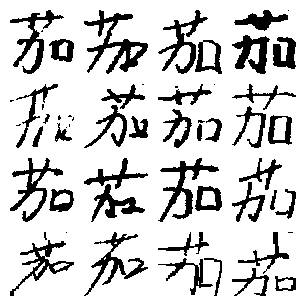 茄茄茄茄
茄茄茄茄
茄茄茄茄
茄茄茄茄